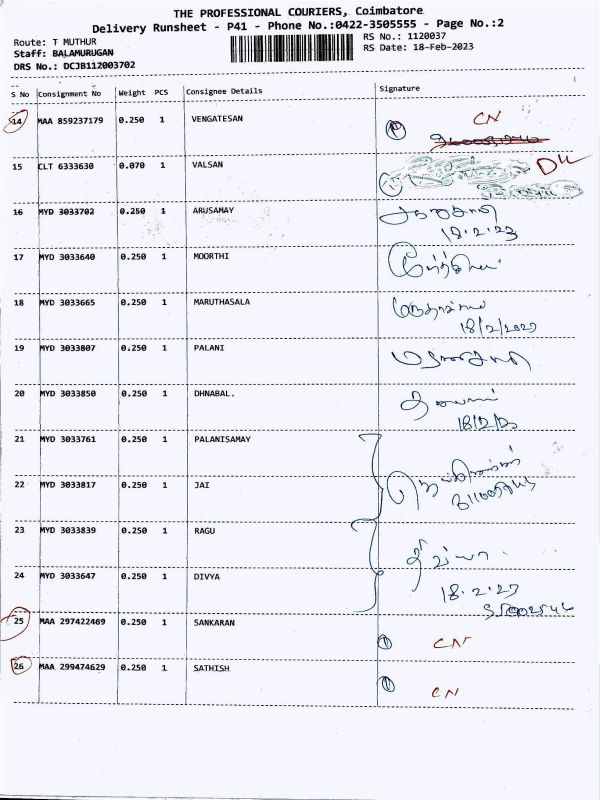 THE PROFESSIONAL COURIERS, Coimbatore
Delivery Runsheet - P41 - Phone No.:0422-3505555 - Page No.:2
Route: T MUTHUR
RS No.: 1120037
Staff: BALAMURUGAN
RS Date: 18-Feb-2023
DRS No.: DCJB112003702
S No Consignment No Weight PCS Consignee Details Signature
14 MAA 859237179 0.250 1 VENGATESAN CN
15 CLT 6333630 0.070 1 VALSAN DL
16 MYD 3033702 0.250 1 ARUSAMAY
18.2.23
17 MYD 3033640 0.250 1 MOORTHI
18 MYD 3033665 0.250 1 MARUTHASALA
18/2/2023
19 MYD 3033807 0.250 1 PALANI
20 MYD 3033850 0.250 1 DHNABAL.
21 MYD 3033761 0.250 1 PALANISAMAY
22 MYD 3033817 0.250 1 JAI
23 MYD 3033839 0.250 1 RAGU
24 MYD 3033647 0.250 1 DIVYA
18.2.23
25 MAA 297422469 0.250 1 SANKARAN CN
26 MAA 299474629 0.250 1 SATHISH CN